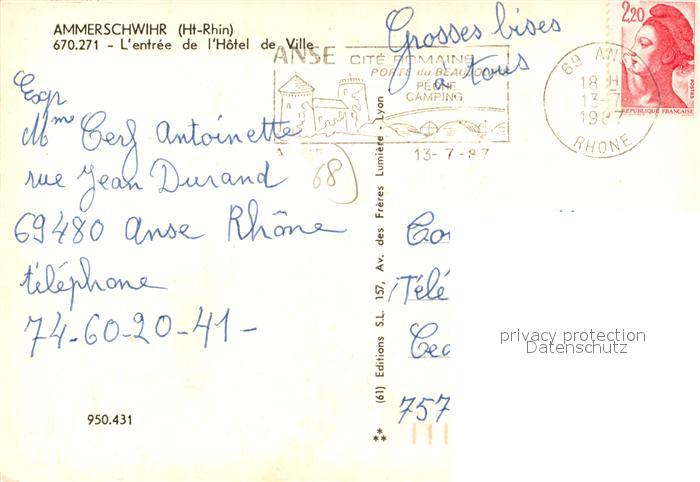 AMMERSCHWIHR (Ht-Rhin)
670.271 - L'entrée de l'Hôtel de Ville
Grosses bises
a tous
ANSE CITÉ ROMAINE
PORTE du BEAUJOLAIS
PÊCHE
CAMPING
13-7-87
69 ANSE
18 H
13-7
1987
RHONE
2,20
POSTES
REPUBLIQUE FRANÇAISE
Exp
Mme Cerf Antoinette
rue Jean Durand
69480 Anse Rhône
téléphone
74-60-20-41-
68
(61) Editions S.L. 157, Av. des Frères Lumière - Lyon
Télé
757
950.431
privacy protection
Datenschutz